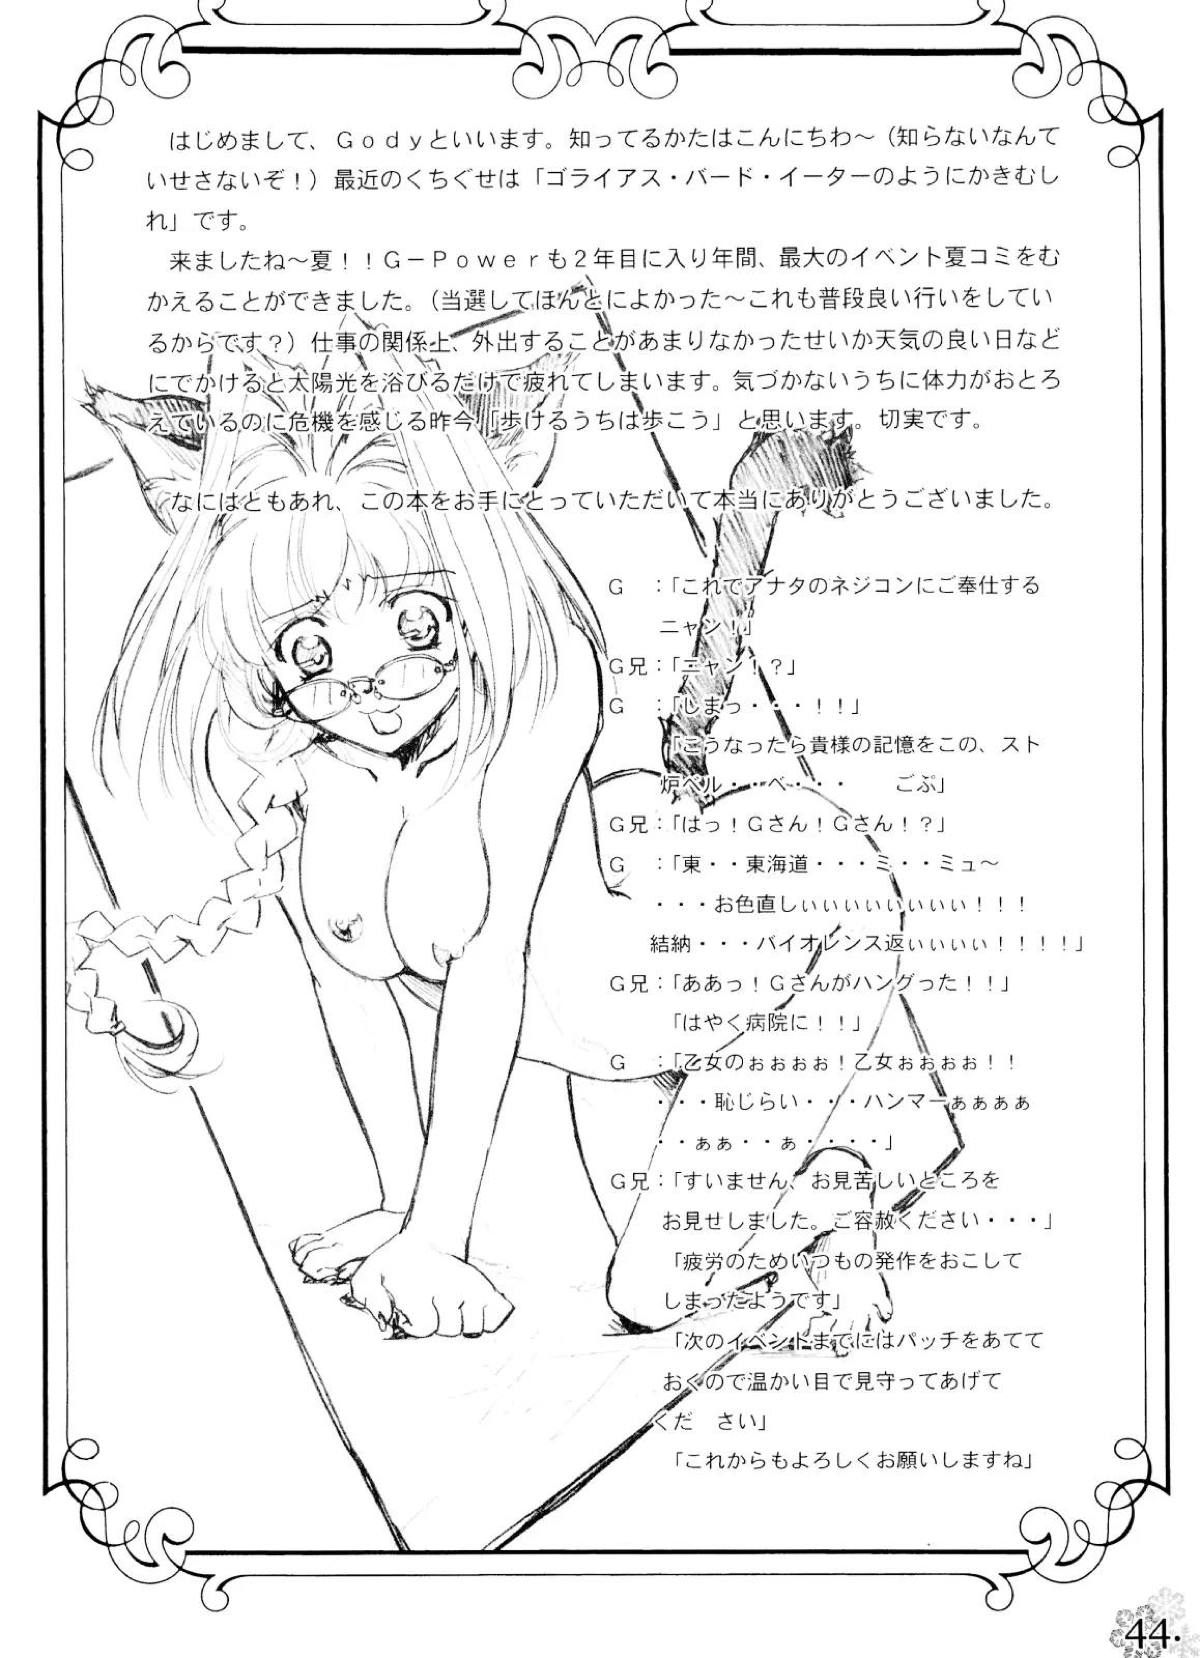 はじめまして、Ｇｏｄｙといいます。知ってるかたはこんにちわ～（知らないなんて
いせさないぞ！）最近のくちぐせは「ゴライアス・バード・イーターのようにかきむし
れ」です。
来ましたね～夏！！Ｇ－Ｐｏｗｅｒも２年目に入り年間、最大のイベント夏コミをむ
かえることができました。（当選してほんとによかった～これも普段良い行いをしてい
るからです？）仕事の関係上、外出することがあまりなかったせいか天気の良い日など
にでかけると太陽光を浴びるだけで疲れてしまいます。気づかないうちに体力がおとろ
えているのに危機を感じる昨今「歩けるうちは歩こう」と思います。切実です。
なにはともあれ、この本をお手にとっていただいて本当にありがとうございました。
Ｇ　：「これでアナタのネジコンにご奉仕する
ニャン！」
Ｇ兄：「ニャン！？」
Ｇ　：「しまっ・・・！！」
「こうなったら貴様の記憶をこの、スト
炉ベル・・ベ・・・　　ごぷ」
Ｇ兄：「はっ！Ｇさん！Ｇさん！？」
Ｇ　：「東・・東海道・・・ミ・・ミュ～
・・・お色直しぃぃぃぃぃぃぃぃ！！！
結納・・・バイオレンス返ぃぃぃぃ！！！！」
Ｇ兄：「ああっ！Ｇさんがハングった！！」
「はやく病院に！！」
Ｇ　：「乙女のぉぉぉぉ！乙女ぉぉぉぉ！！
・・・恥じらい・・・ハンマーぁぁぁぁ
・・ぁぁ・・ぁ・・・・」
Ｇ兄：「すいません、お見苦しいところを
お見せしました。ご容赦ください・・・」
「疲労のためいつもの発作をおこして
しまったようです」
「次のイベントまでにはパッチをあてて
おくので温かい目で見守ってあげて
くだ　さい」
「これからもよろしくお願いしますね」
44.